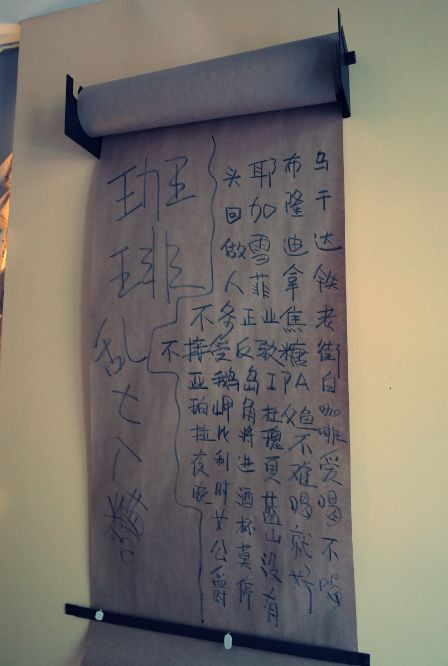 乌干达铁老街白咖啡爱喝不喝
布隆迪拿焦糖PA鱼不难喝就好
耶加雪菲业软I杜瑰夏蓝山没有
头回做人正反岛角将进酒杯莫停
冬受鹅岬比利时女公爵
不接亚珀拉夜晚
不
珈琲乱七八糟